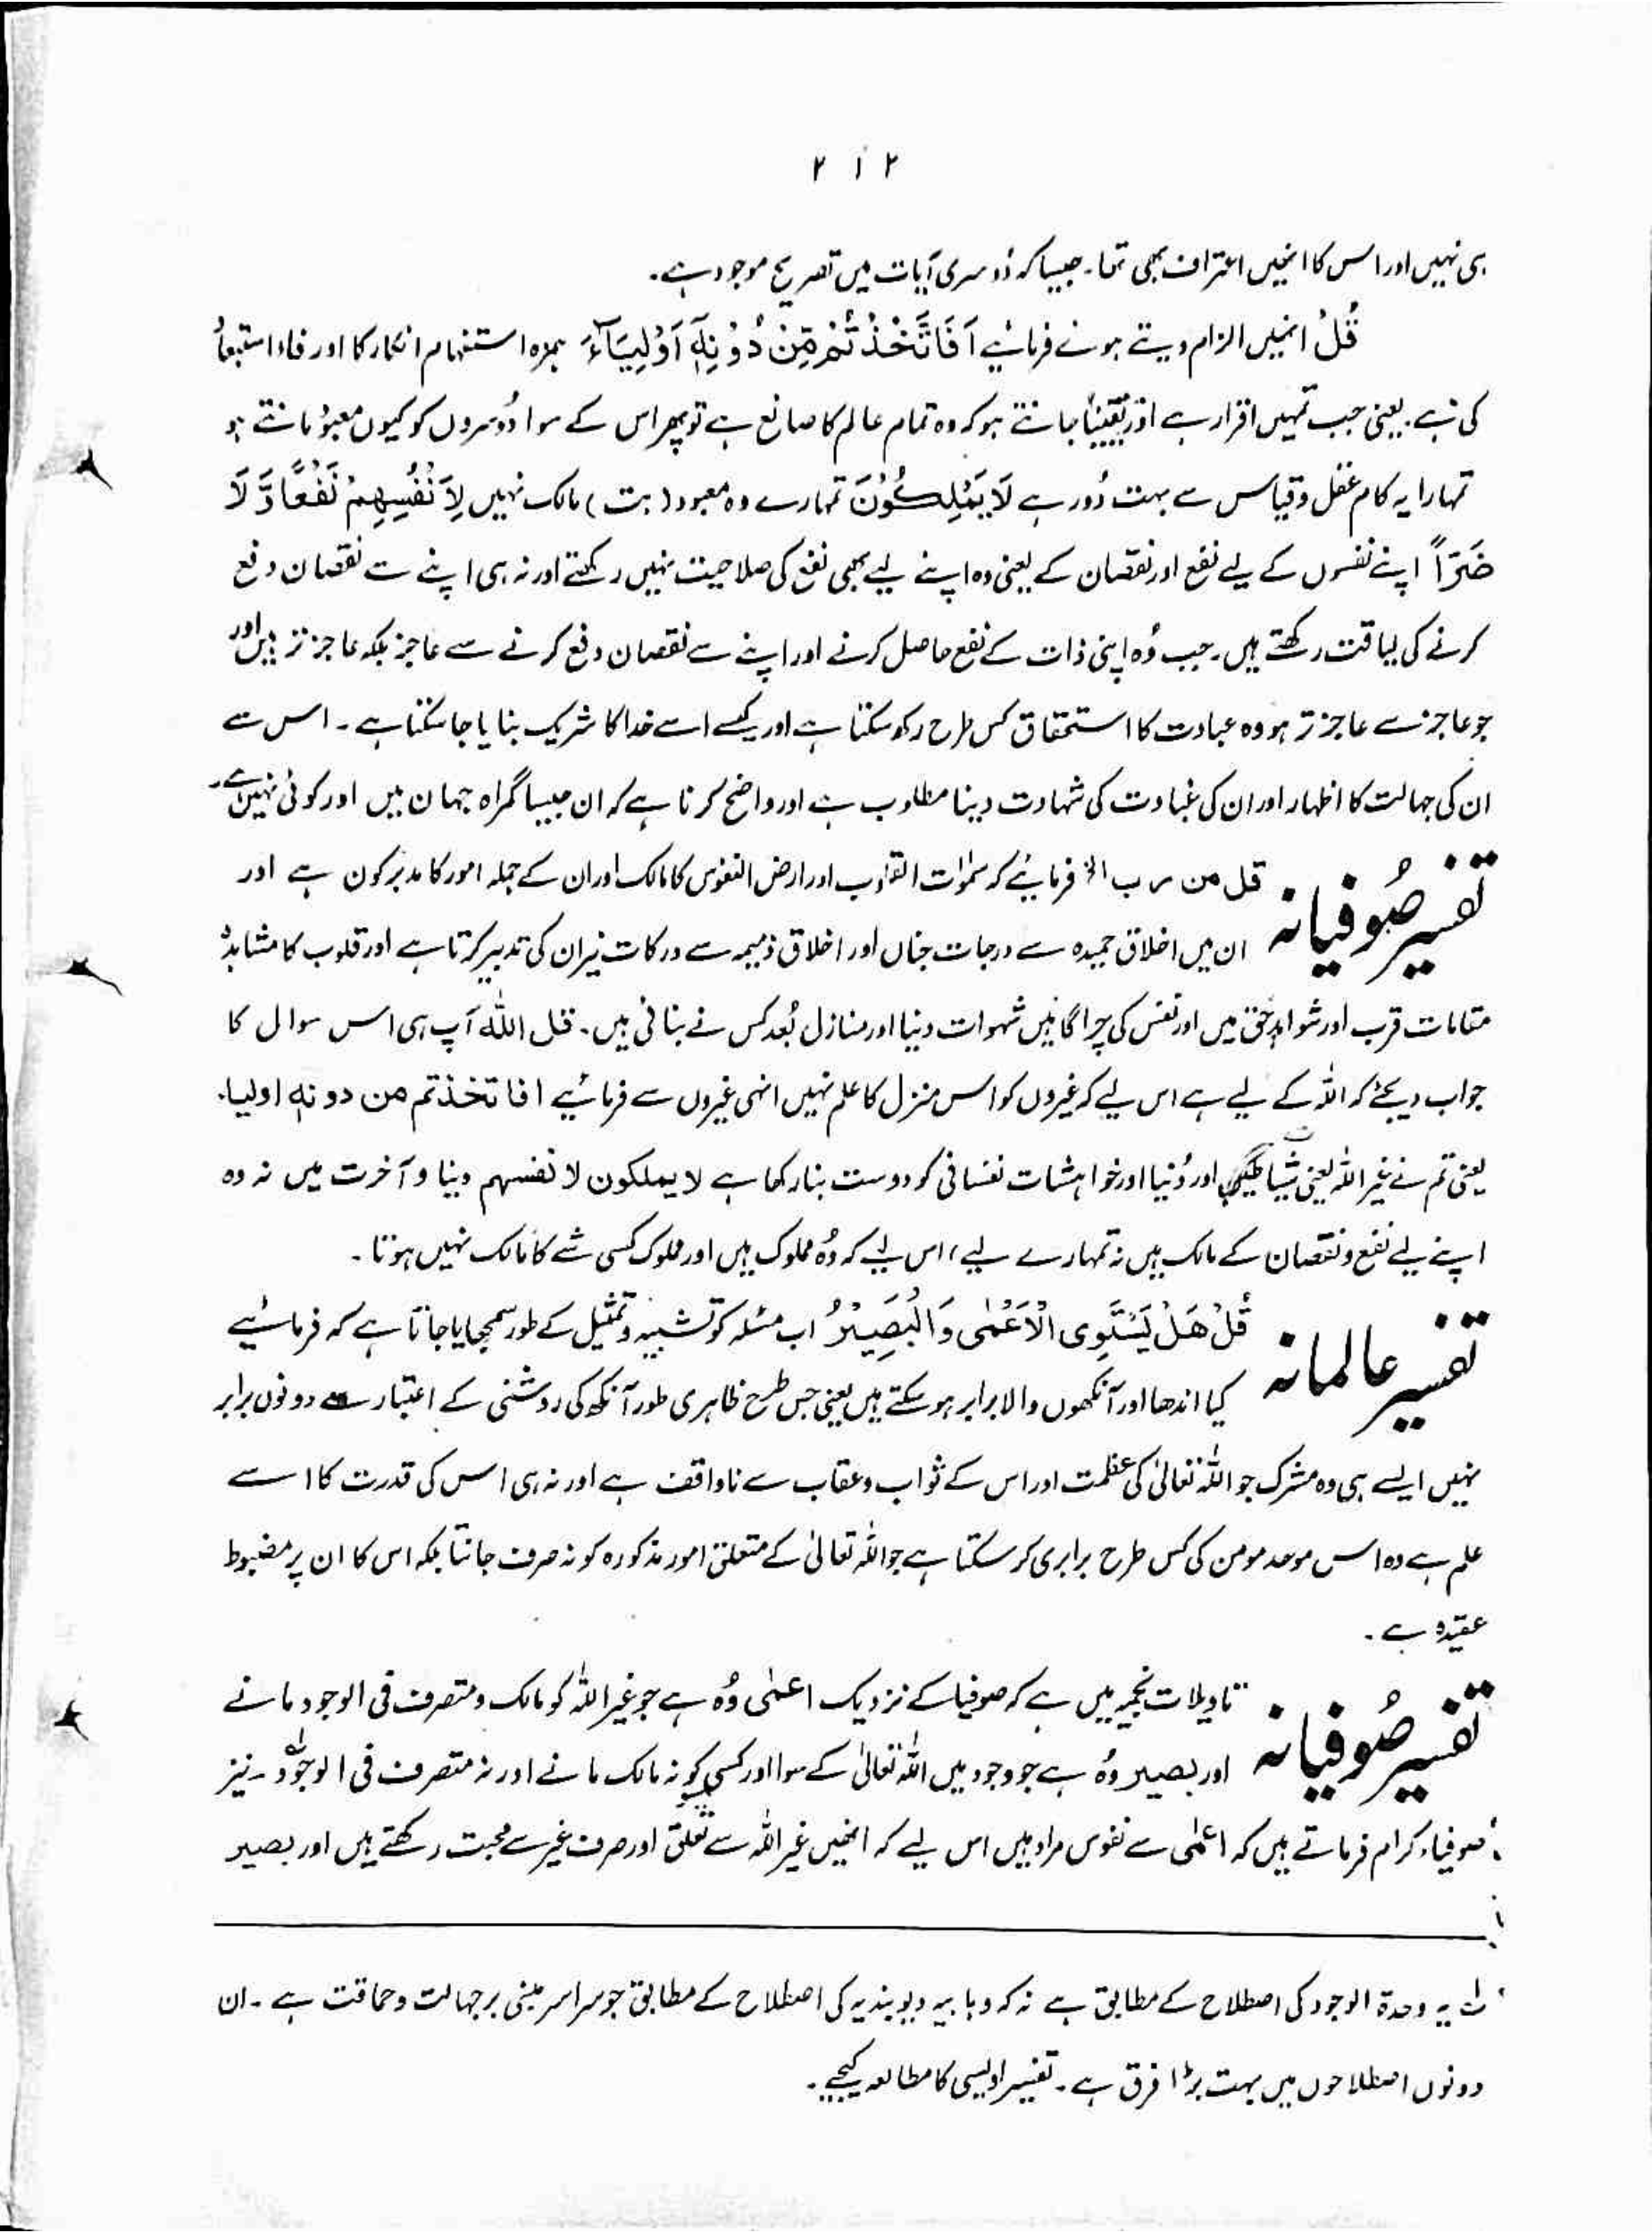 ۲۱۲
ہی نہیں اور اس کا انھیں اعتراف بھی تھا۔ جیسا کہ دُوسری آیات میں تصریح موجود ہے۔
قُلْ انھیں الزام دیتے ہوئے فرمائیے اَفَاتَّخَذْتُمْ مِّنْ دُوْنِهٖٓ اَوْلِيَآءَ ہمزہ استفہام انکار کا اور فاء استبعاد
کی ہے یعنی جب تمہیں اقرار ہے اور یقیناً جانتے ہو کہ وہ تمام عالم کا صانع ہے تو پھر اس کے سوا دُوسروں کو کیوں معبود مانتے ہو
تمہارا یہ کام عقل و قیاس سے بہت دُور ہے لَا يَمْلِكُوْنَ تمہارے وہ معبود (بت) مالک نہیں لِاَنْفُسِهِمْ نَفْعًا وَّلَا
ضَرًّا اپنے نفسوں کے لیے نفع اور نقصان کے یعنی وہ اپنے لیے بھی نفع کی صلاحیت نہیں رکھتے اور نہ ہی اپنے سے نقصان دفع
کرنے کی لیاقت رکھتے ہیں۔ جب وُہ اپنی ذات کے نفع حاصل کرنے اور اپنے سے نقصان دفع کرنے سے عاجز بلکہ عاجز تر ہیں اور
جو عاجز سے عاجز تر ہو وہ عبادت کا استحقاق کس طرح رکھ سکتا ہے اور کیسے اسے خدا کا شریک بنایا جا سکتا ہے۔ اس سے
ان کی جہالت کا اظہار اور ان کی غباوت کی شہادت دینا مطلوب ہے اور واضح کرنا ہے کہ ان جیسا گمراہ جہان میں اور کوئی نہیں ہے۔
تفسیر صُوفیانہ قل من رب الخ فرمائیے کہ سمٰوات القلوب اور ارض النفوس کا مالک اور ان کے جملہ امور کا مدبر کون ہے اور
ان میں اخلاق حمیدہ سے درجات جناں اور اخلاق ذمیمہ سے درکات نیران کی تدبیر کرتا ہے اور قلوب کا مشاہدہ
مقامات قرب اور شواہدِ حق میں اور نفس کی چراگاہیں شہوات دنیا اور منازل بُعد کس نے بنائی ہیں۔ قل اللہ آپ ہی اس سوال کا
جواب دیجئے کہ اللہ کے لیے ہے اس لیے کہ غیروں کو اس منزل کا علم نہیں انہی غیروں سے فرمائیے افاتخذتم من دونہٖ اولیاء
یعنی تم نے غیر اللہ یعنی شیاطین اور دُنیا اور خواہشات نفسانی کو دوست بنا رکھا ہے لا یملکون لانفسہم دنیا و آخرت میں نہ وہ
اپنے لیے نفع و نقصان کے مالک ہیں نہ تمہارے لیے، اس لیے کہ وُہ مملوک ہیں اور مملوک کسی شے کا مالک نہیں ہوتا۔
تفسیر عالمانہ قُلْ هَلْ يَسْتَوِى الْاَعْمٰى وَالْبَصِيْرُ اب مسئلہ کو تشبیہ و تمثیل کے طور سمجھایا جاتا ہے کہ فرمائیے
کیا اندھا اور آنکھوں والا برابر ہو سکتے ہیں یعنی جس طرح ظاہری طور آنکھ کی روشنی کے اعتبار سے دونوں برابر
نہیں ایسے ہی وہ مشرک جو اللہ تعالیٰ کی عظمت اور اس کے ثواب و عقاب سے ناواقف ہے اور نہ ہی اس کی قدرت کا اسے
علم ہے وہ اس موحد مومن کی کس طرح برابری کر سکتا ہے جو اللہ تعالیٰ کے متعلق امور مذکورہ کو نہ صرف جانتا بلکہ اس کا ان پر مضبوط
عقیدہ ہے۔
تفسیر صُوفیانہ تاویلات نجمیہ میں ہے کہ صوفیا کے نزدیک اعمٰی وُہ ہے جو غیر اللہ کو مالک و متصرف فی الوجود مانے
اور بصیر وُہ ہے جو وجود میں اللہ تعالیٰ کے سوا اور کسی کو نہ مالک مانے اور نہ متصرف فی الوجود لہ۔ نیز
صوفیاء کرام فرماتے ہیں کہ اعمٰی سے نفوس مراد ہیں اس لیے کہ انھیں غیر اللہ سے تعلق اور صرف غیر سے محبت رکھتے ہیں اور بصیر
لہ یہ وحدۃ الوجود کی اصطلاح کے مطابق ہے نہ کہ وہابیہ دیوبندیہ کی اصطلاح کے مطابق جو سراسر مبنی بر جہالت و حماقت ہے۔ ان
دونوں اصطلاحوں میں بہت بڑا فرق ہے۔ تفسیر اویسی کا مطالعہ کیجیے۔